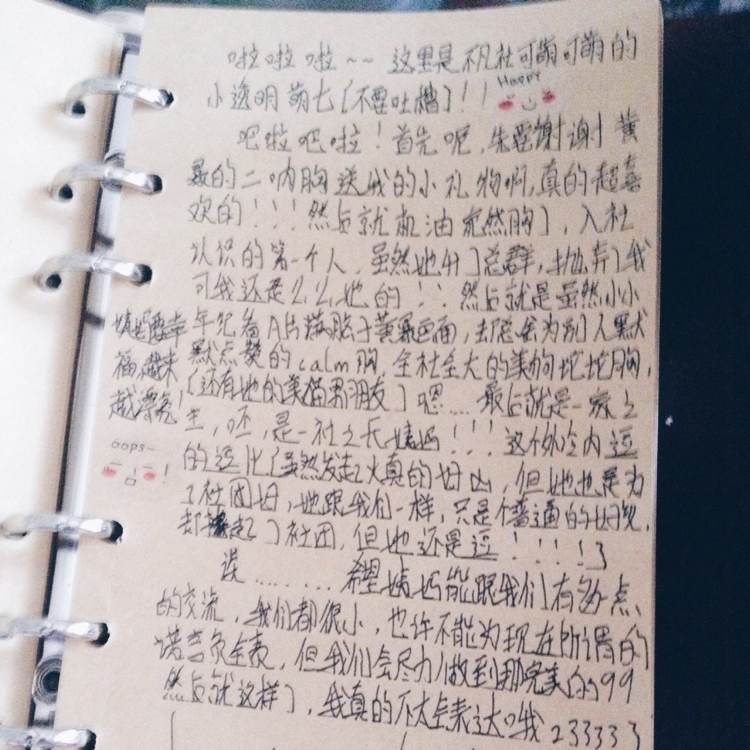 啦啦啦~~这里是不凡社可萌可萌的
Happy
小透明萌七[不要吐槽]!!
吧啦吧啦!首先呢,朱要谢谢黄
最的二呐胸送我的小礼物啊,真的超喜
欢的!!!然后就是油 然胸了,入社
认识的第一个人,虽然她开了总群,抛弃了我
可我还是么么她的!!然后就是虽然小小
年纪看A片满脑子黄暴画面,却愿意为别人默
默点赞的calm胸,全社全大的美狗坨坨胸,
[还有她的美猫男朋友]嗯....最后就是一家之
主,呸,是一社之长姨妈!!!这个外冷内逗
的逗比[虽然发起火真的好凶,但她也是为
了社团好,她跟我们一样,只是个普通的女孩,
却撑起了社团,但她还是逗!!!!]
诶........希望姨妈能跟我们有多一点
的交流,我们都很小,也许不能为现在所谓的
诺言负全责,但我们会尽力做到那完美的99
然后就这样了,我真的不太会表达哦233333
姨妈要幸
福,越来
越漂亮!
oops~